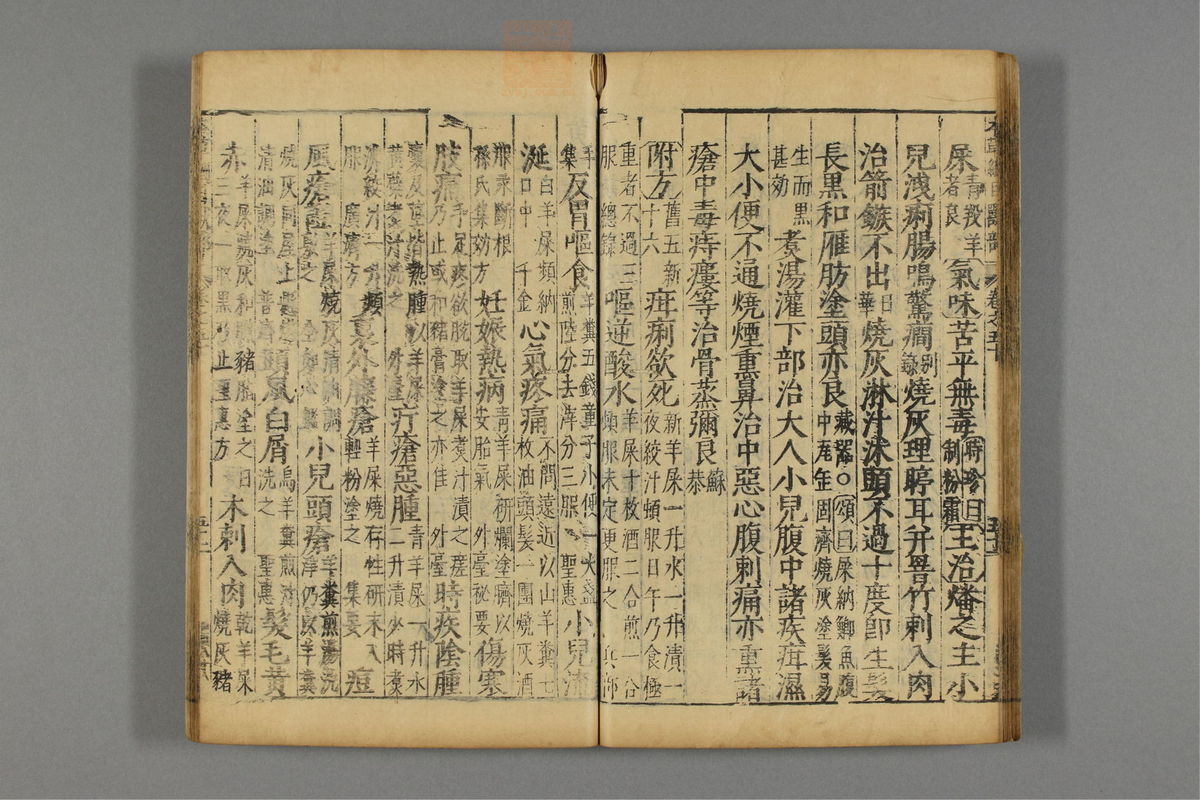 屎青羖羊者良氣味苦平無毒時珍曰制粉霜主治燔之主小
兒洩痢腸鳴驚癇別錄燒灰理聤耳并罯竹刺入肉
治箭鏃不出日華燒灰淋汁沐頭不過十度即生髮
長黑和雁肪塗頭亦良藏器○頌曰屎納鯽魚腹中瓦缶固濟燒灰塗髮易
生而黑甚効煮湯灌下部治大人小兒腹中諸疾疳濕
大小便不通燒煙熏鼻治中惡心腹刺痛亦熏諸
瘡中毒痔瘻等治骨蒸彌良蘇恭
附方舊五新十六疳痢欲死新羊屎一升水一升漬一夜絞汁頓服日午乃食極
重者不過三服總錄嘔逆酸水羊屎十枚酒二合煎一合頓服未定更服之兵部
手集反胃嘔食羊糞五錢童子小便一大盞煎六分去滓分三服聖惠小兒流
涎白羊屎頻納口中千金心氣疼痛不問遠近以山羊糞七枚油頭髮一團燒灰酒
服永斷根孫氏集効方妊娠熱病青羊屎研爛塗臍以安胎氣外臺秘要傷寒
肢痛手足疼欲脫取羊屎煮汁漬之瘥乃止或和豬膏塗之亦佳外臺時疾陰腫
囊及莖皆熱腫以羊屎黃蘗煮汁洗之外臺疔瘡惡腫青羊屎一升水二升漬少時煮
沸絞汁一升頓服廣濟方裏外臁瘡羊屎燒存性研末入輕粉塗之集要痘
風瘡羊屎燒灰清油調小兒頭瘡羊糞煎湯洗淨仍以羊糞
燒灰同屋上清油調塗普濟頭風白屑烏羊糞煎汁洗之聖惠髮毛黃
赤羊屎燒灰和豬脂塗之日三夜一取黑乃止聖惠方木刺入肉乾羊屎燒灰豬